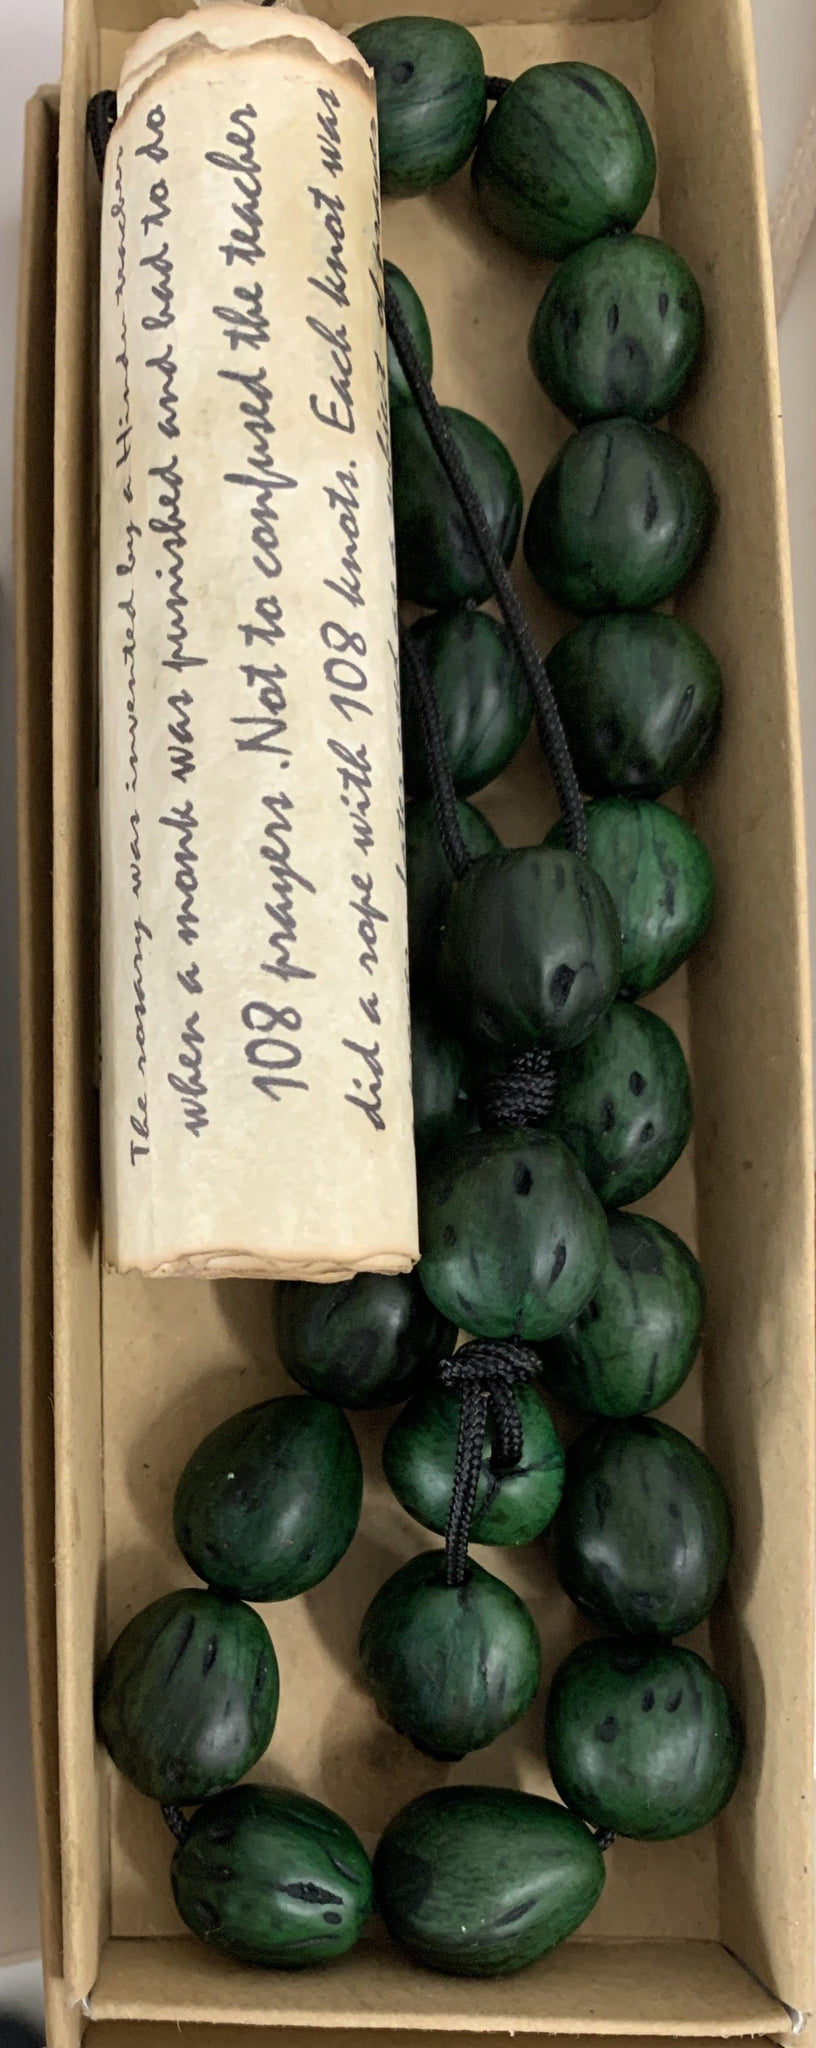 The rosary was invented by a Hindu teacher
when a monk was punished and had to do
108 prayers .Not to confused the teacher
did a rope with 108 knots. Each knot was